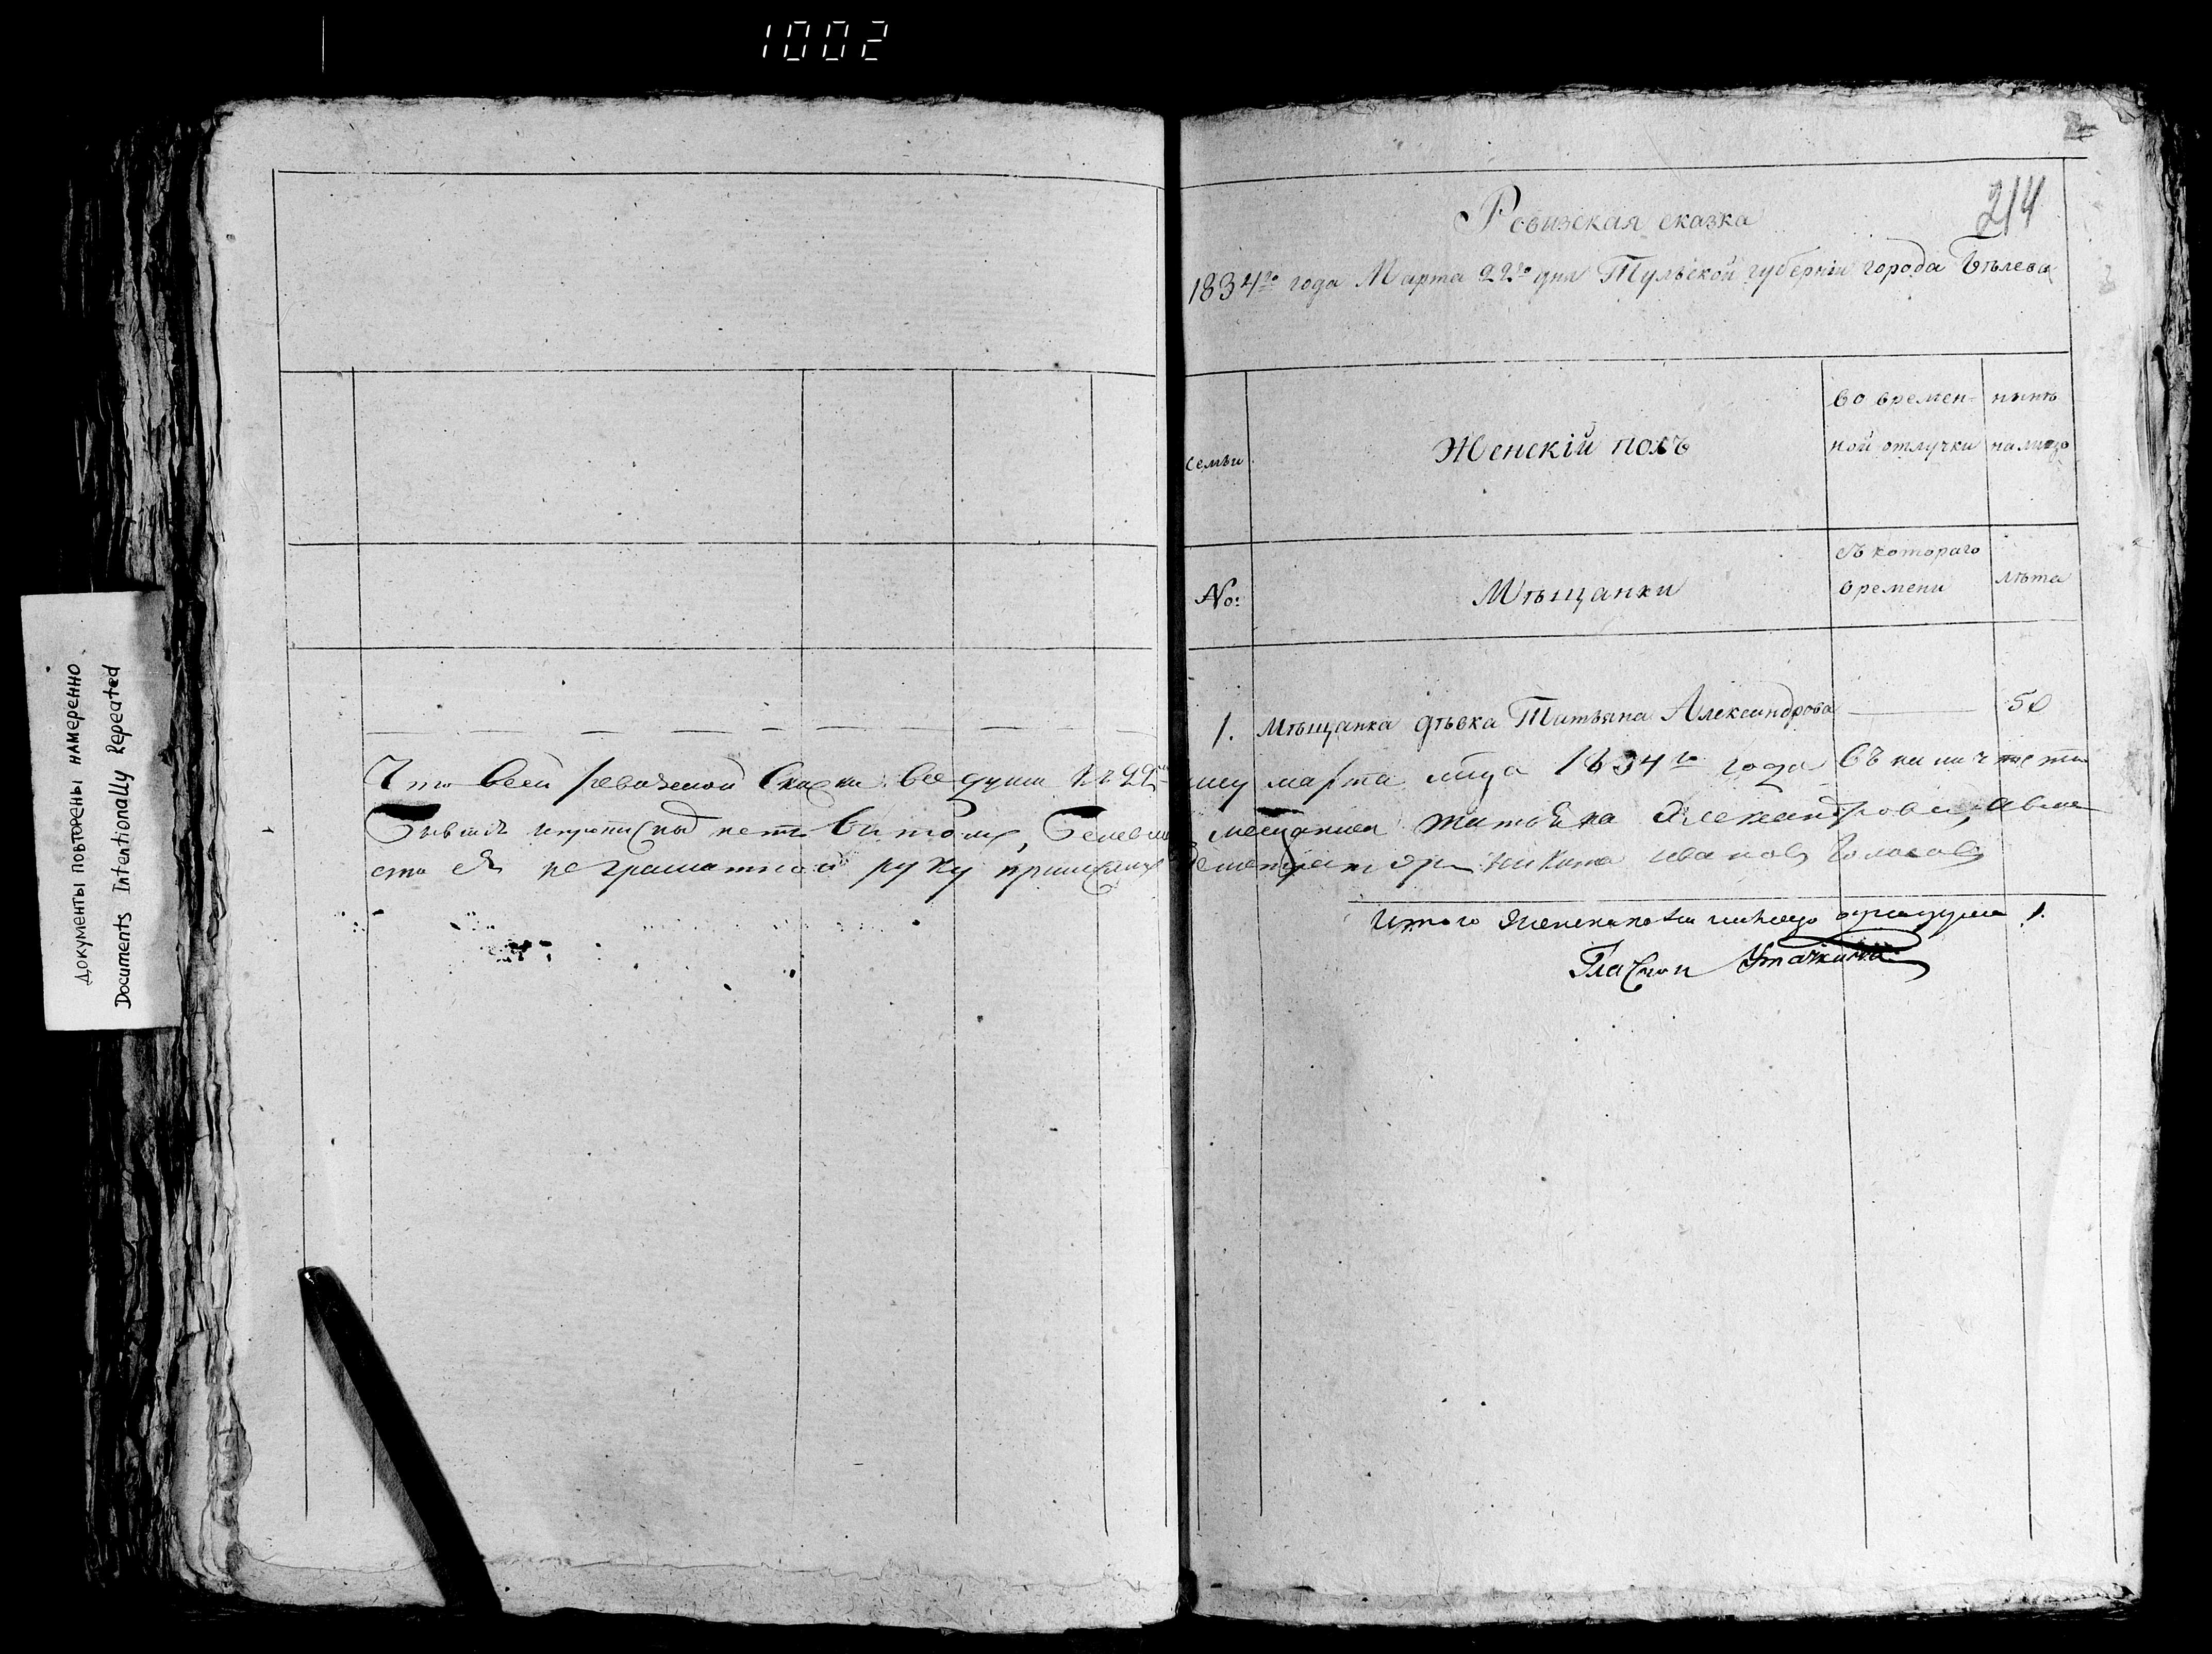 1002
Документы повторены намеренно
Documents Intentionally Repeated
214
Ревизская сказка
1834го года Марта 22го дня Тульской губернiи города Бѣлева
семьи
Женскiй полъ
во времен-
ной отлучки
нынѣ
налицо
No:
Мѣщанки
съ котораго
времени
лѣта
1. Мѣщанка дѣвка Татьяна Александрова 50
Что в сей ревизской Скаски все души к 22 му марта мца 1834го года въ
нет в том, мещанка татьяна Александрова, а вме
сто ея неграмотной руку никита иванов
Итого женска пола налицо 1.
Гласнои